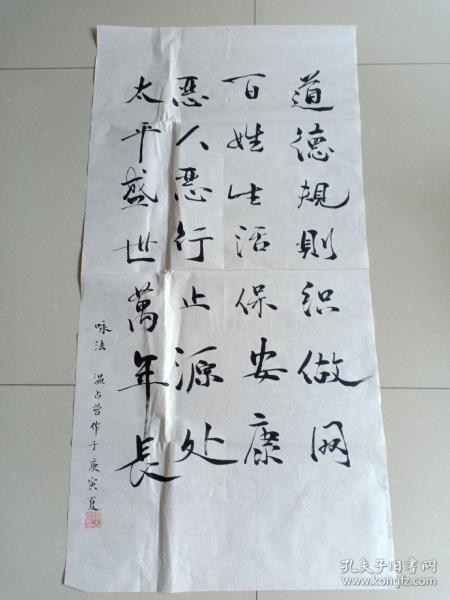 道德规則织做网
百姓生活保安康
恶人恶行止源处
太平盛世萬年長
咏法 温占营作于庚寅夏
孔夫子旧书网
www.kongfz.com